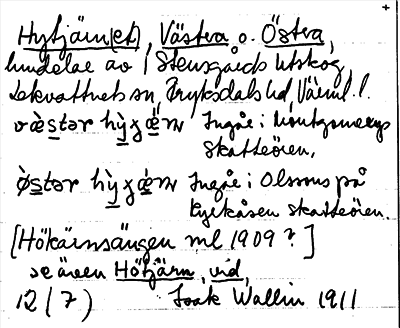 Hytjärn(et), Västra o. Östra,
hundelar av Stensgårds Utskog
Lekvattnets sn, Fryksdals hd, Värml. l.
væ̀stər hỳʒæ̀rn Ingår i Montgomerys
skatteören.
ø̀stər hỳʒæ̀rn Ingår i Olssons på
Kyrkåsen skatteören.
[Hökärnsängen ml 1909?]
se även Hötjärn, vid,
12 (7) Isak Wallin 1911